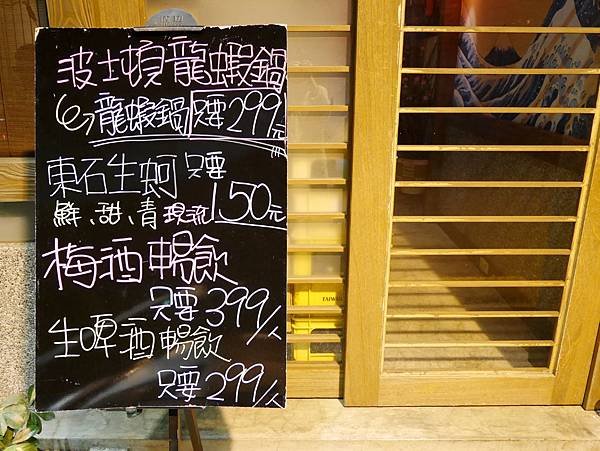 波士頓龍蝦鍋
龍蝦鍋 只要299元
東石生蚵 只要
鮮、甜、青 現流 150元
梅酒暢飲
只要399/人
生啤酒暢飲
只要299/人
TAIWAN